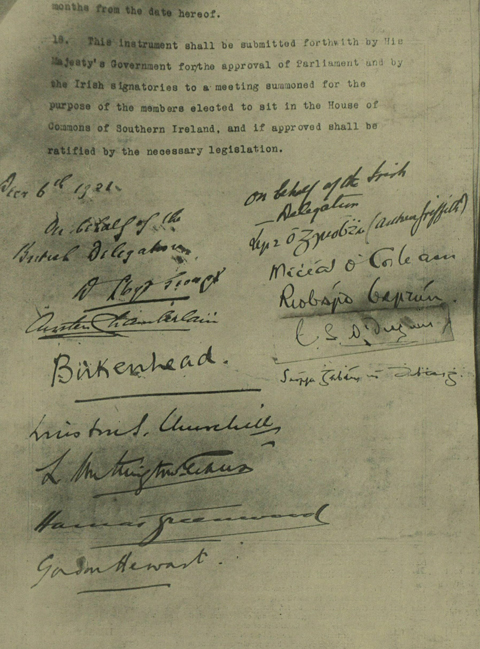 months from the date hereof.
18. This instrument shall be submitted forthwith by His
Majesty's Government for the approval of Parliament and by
the Irish signatories to a meeting summoned for the
purpose of the members elected to sit in the House of
Commons of Southern Ireland, and if approved shall be
ratified by the necessary legislation.
Decr 6th 1921.
On behalf of the
British Delegation
D Lloyd George
Austen Chamberlain
Birkenhead.
Winston S. Churchill
L Worthington-Evans
Hamar Greenwood
Gordon Hewart.
On behalf of the Irish
Delegation
Art Ó Gríobhtha (Arthur Griffith)
Mícéál Ó Coileain
Riobárd Bartún
E. S. Ó Dugain
Seórsa Ghabháin Uí Dhubhthaigh